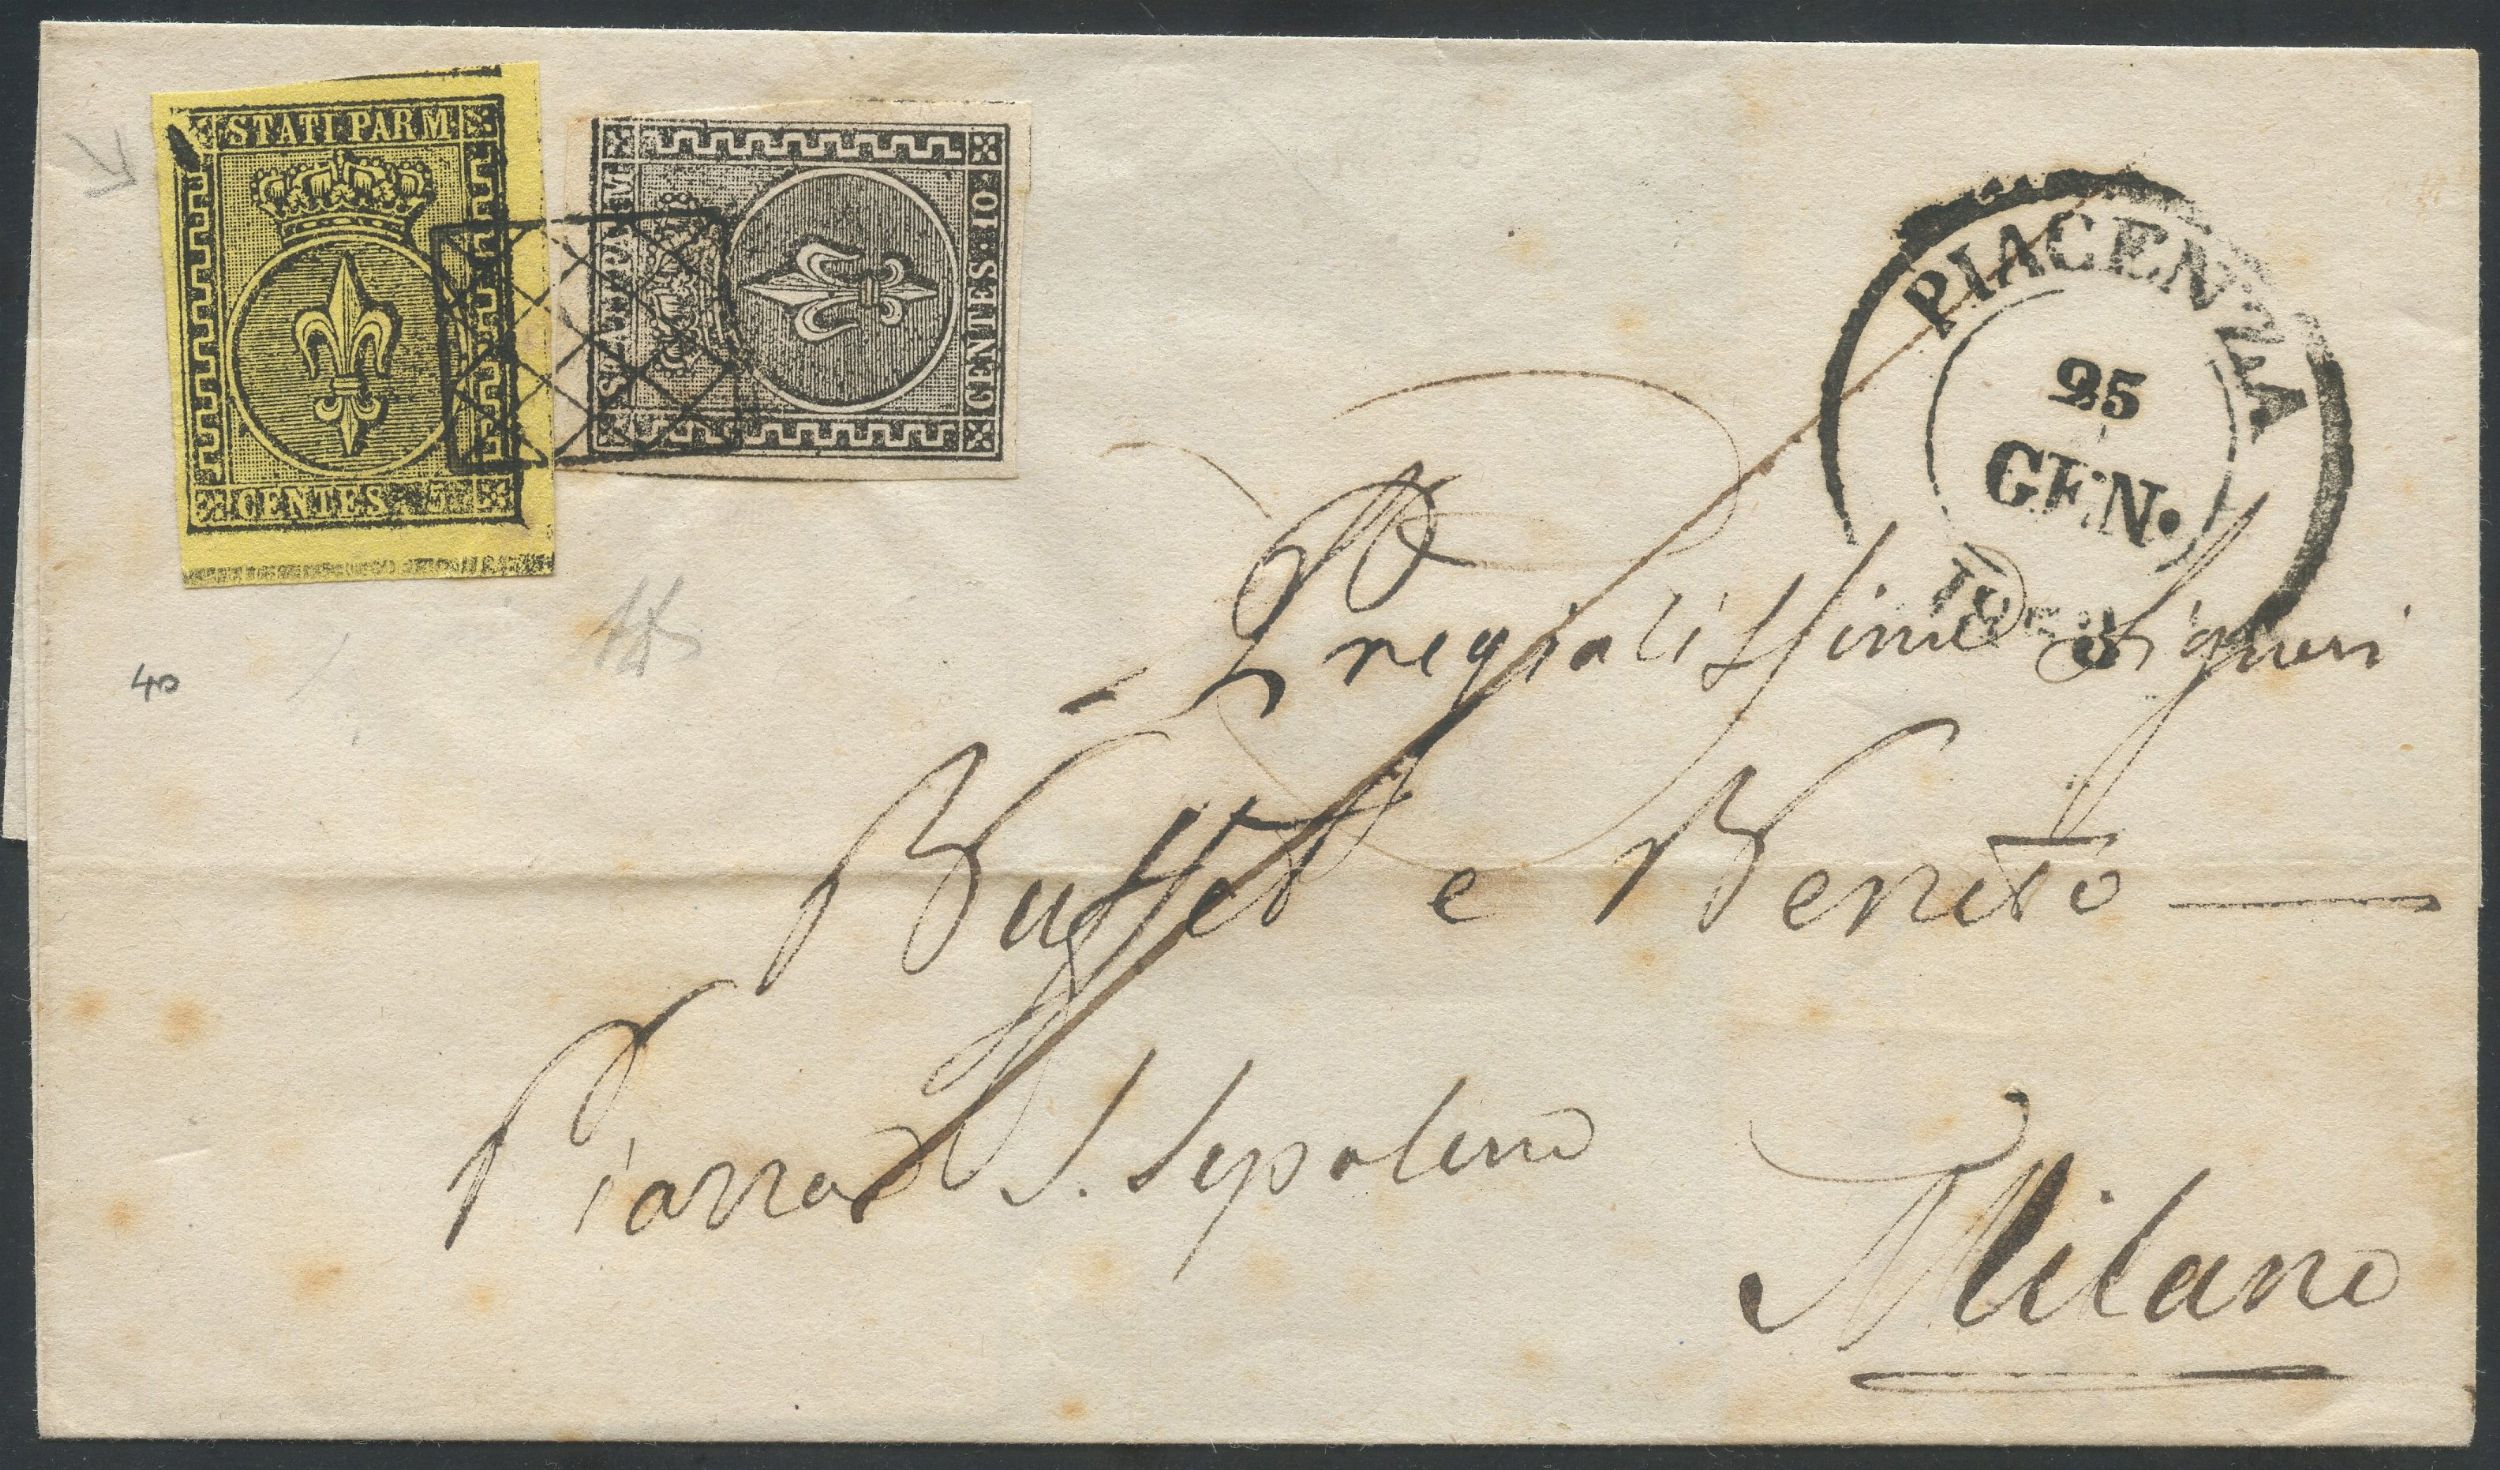 STATI PARM.
CENTES. 5
STATI PARM
CENTES. 10
PIACENZA
25
GEN.
40
Pregiatissimi Signori
Buffet e Beruto
Piazza S. Sepolcro
Milano